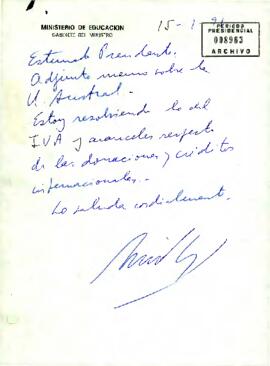 MINISTERIO DE EDUCACION
GABINETE DEL MINISTRO
15-1-
PERIODO
PRESIDENCIAL
008963
ARCHIVO
Estimado Presidente.
Adjunto memo sobre la
U. Austral.
Estoy resolviendo lo del
IVA y aranceles respecto
de las donaciones y créditos
internacionales.
Lo saluda cordialmente.